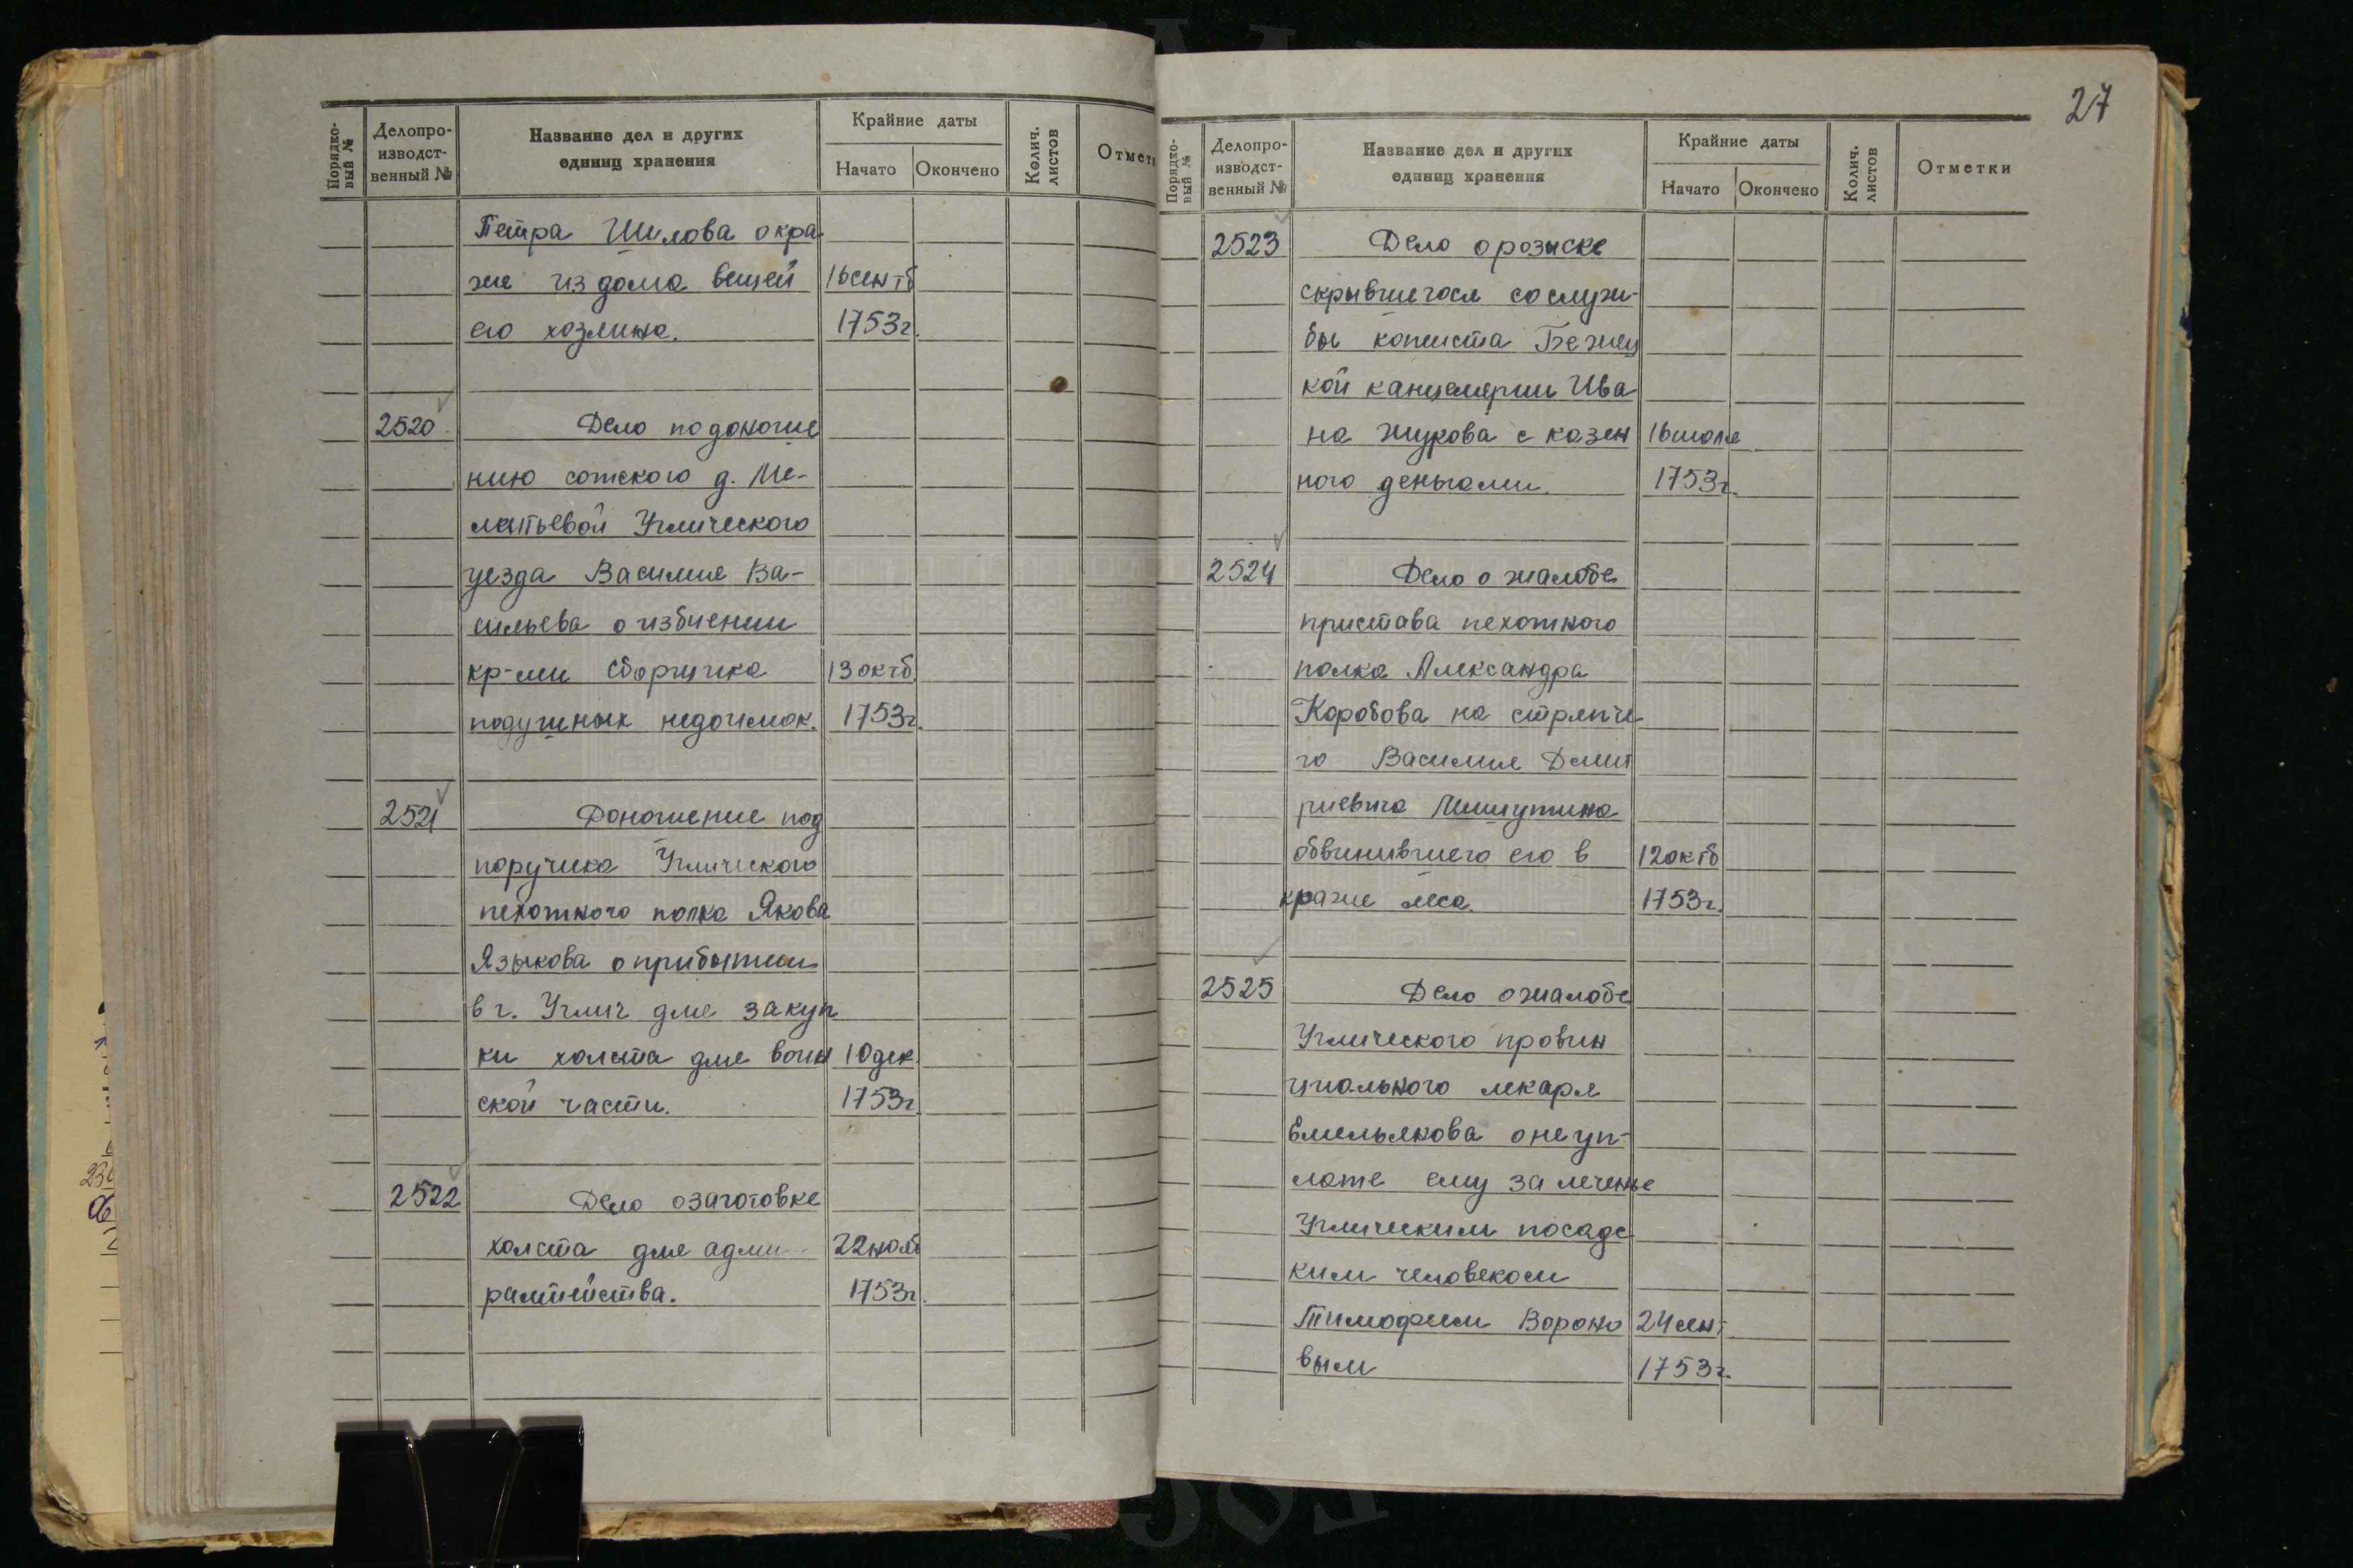 Порядко-
вый №
Делопро-
изводст-
венный №
Название дел и других
единиц хранения
Крайние даты
Начато Окончено
Колич.
листов
Отмет
Петра Шилова о кра
же из дома вещей 16 сентб
его хозяина. 1753г.
2520 Дело по доноше
нию сотского д. Ме-
латьевой Угличского
уезда Василия Ва-
сильева о избиении
кр-ми сборщика 13 октб
подушных недоимок. 1753г.
2521 Доношение под
поручика Угличского
пехотного полка Якова
Языкова о прибытии
в г. Углич для закуп
ки холста для воин 10 дек.
ской части. 1753г
2522 Дело о заготовке
холста для адми- 22 нояб
ралтейства. 1753г.
27
Порядко-
вый №
Делопро-
изводст-
венный №
Название дел и других
единиц хранения
Крайние даты
Начато Окончено
Колич.
листов
Отметки
2523 Дело о розыске
скрывшегося со служ-
бы копииста Бежец
кой канцелярии Ива
на Жукова с казен 16 июля
ного деньгами. 1753г.
2524 Дело о жалобе
пристава пехотного
полка Александра
Коробова на стряпче
го Василия Дмит
риевича Мишутина
обвинившего его в 12 октб
краже леса. 1753г.
2525 Дело о жалобе
Угличского провин
циального лекаря
Емельякова о неуп-
лате ему за лечение
Угличским посадс
ким человеком
Тимофеем Вороно 24 сент
вым 1753г.